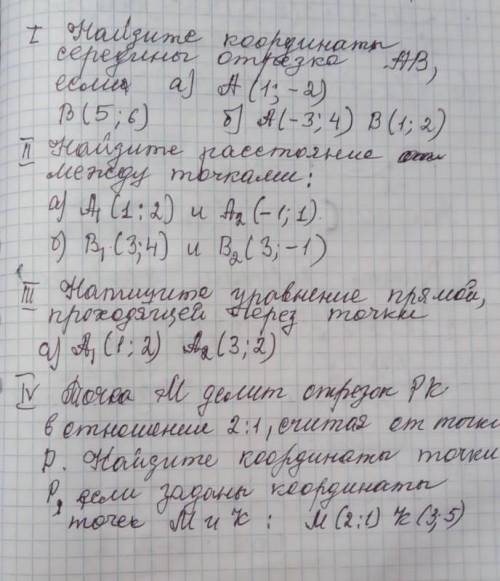 I Найдите координаты
середины отрезка АВ,
если а) А(1;-2)
В(5;6) б) А(-3;4) В(1;2)
II Найдите расстояние
между точками:
а) А₁(1;2) и А₂(-1;1)
б) В₁(3;4) и В₂(3;-1)
III Напишите уравнение прямой,
проходящей через точки
а) А₁(1;2) А₂(3;2)
IV Точка М делит отрезок РК
в отношении 2:1, считая от точки
Р. Найдите координаты точки
Р, если заданы координаты
точек М и К: М(2:1) К(3;5)